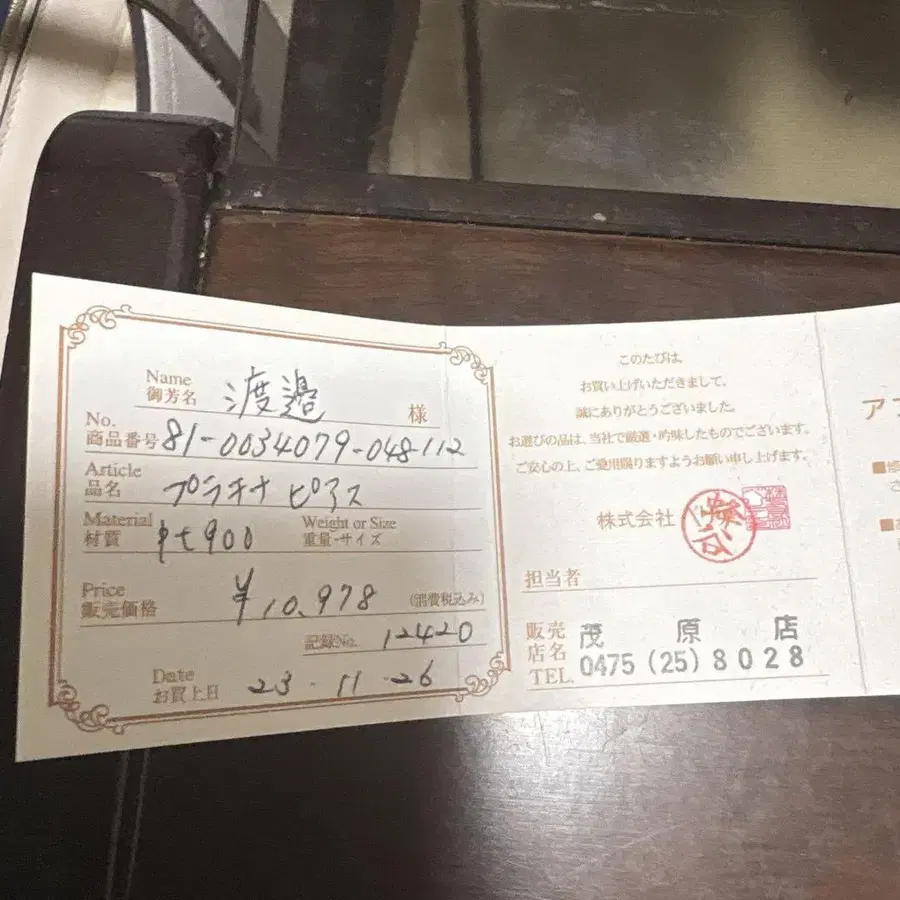 Name
御芳名 渡邉 様
No.
商品番号 81-0034079-048-112
Article
品名 プラチナ ピアス
Material
材質 pt900
Weight or Size
重量・サイズ
Price
販売価格 ¥10,978 (消費税込み)
記録No. 12420
Date
お買上日 23-11-26
このたびは
お買い上げいただきまして、
誠にありがとうございました。
お選びの品は、当社で厳選・吟味したものでございます。
ご安心の上、ご愛用賜りますようお願い申し上げます。
株式会社
担当者
販売
店名 茂原店
TEL. 0475(25)8028
ア